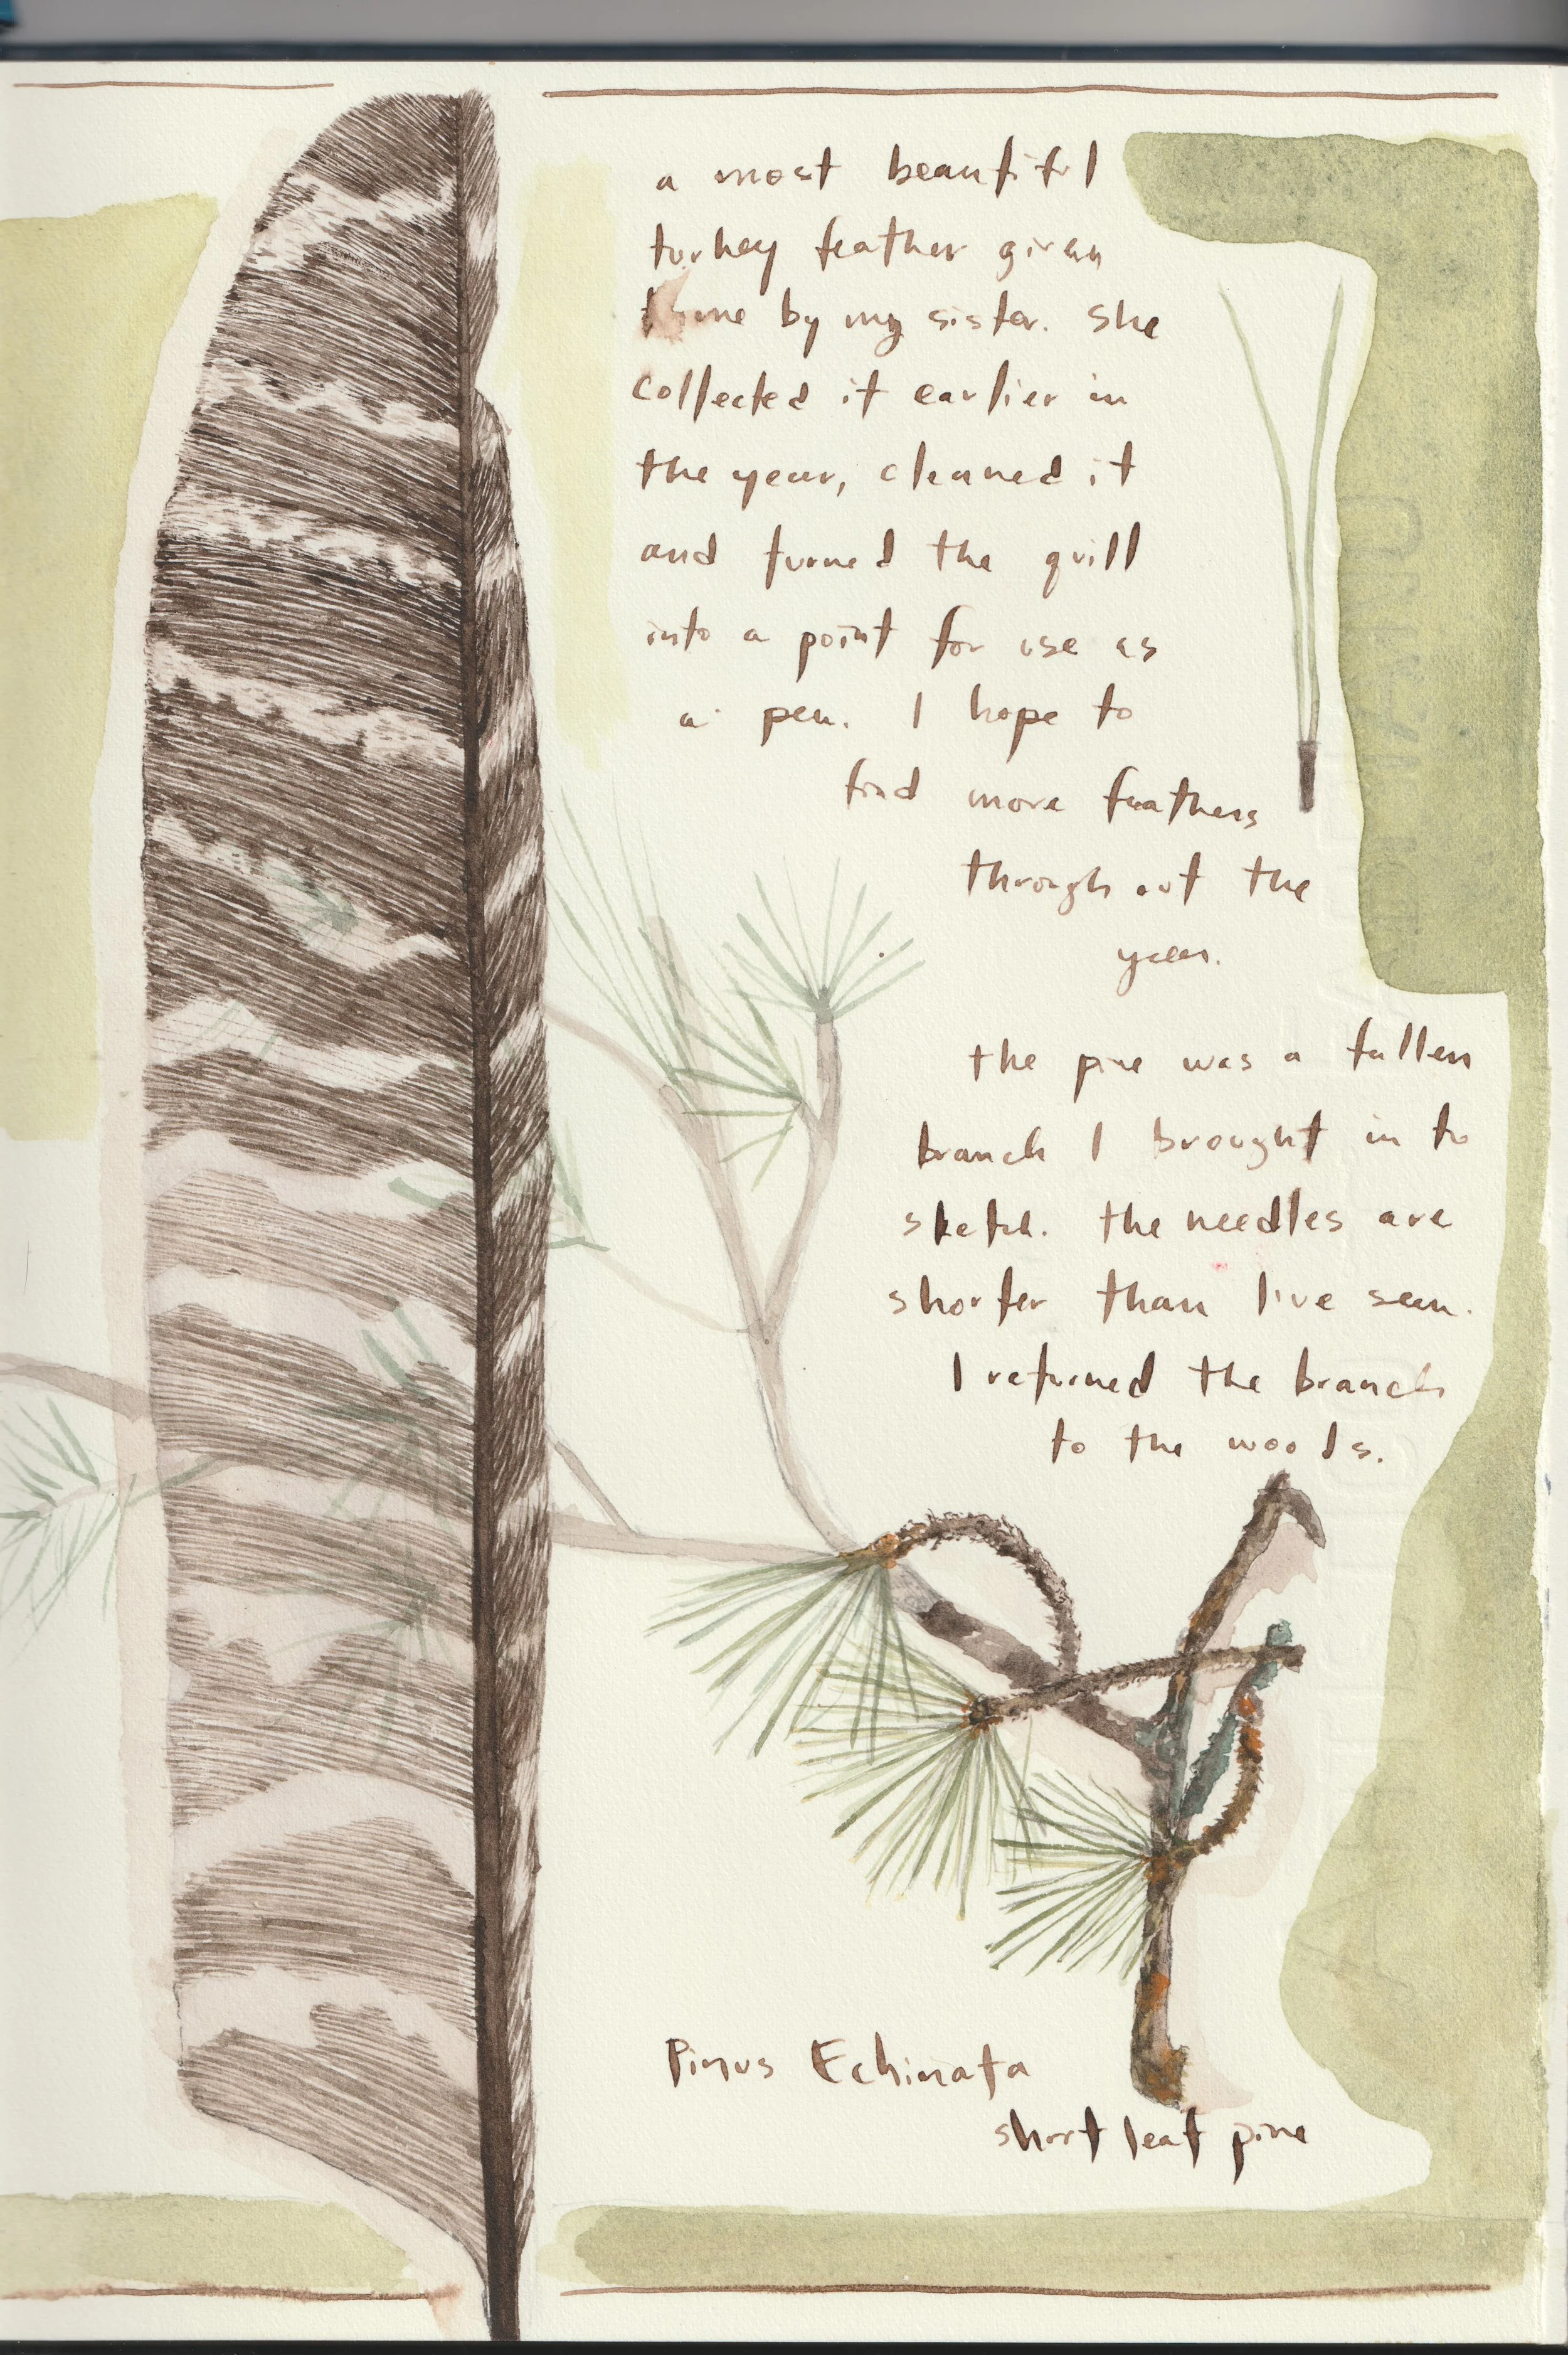 a most beautiful
turkey feather given
to me by my sister. She
collected it earlier in
the year, cleaned it
and turned the quill
into a point for use as
a pen. I hope to
find more feathers
through out the
year.
the pine was a fallen
branch I brought in to
sketch. the needles are
shorter than I've seen.
I returned the branch
to the woods.
Pinus Echinata
short leaf pine